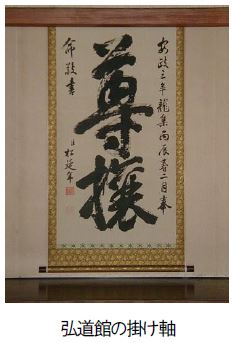 安政三年龍集丙辰春二月奉
尊攘
命敬書
臣松延年
弘道館の掛け軸